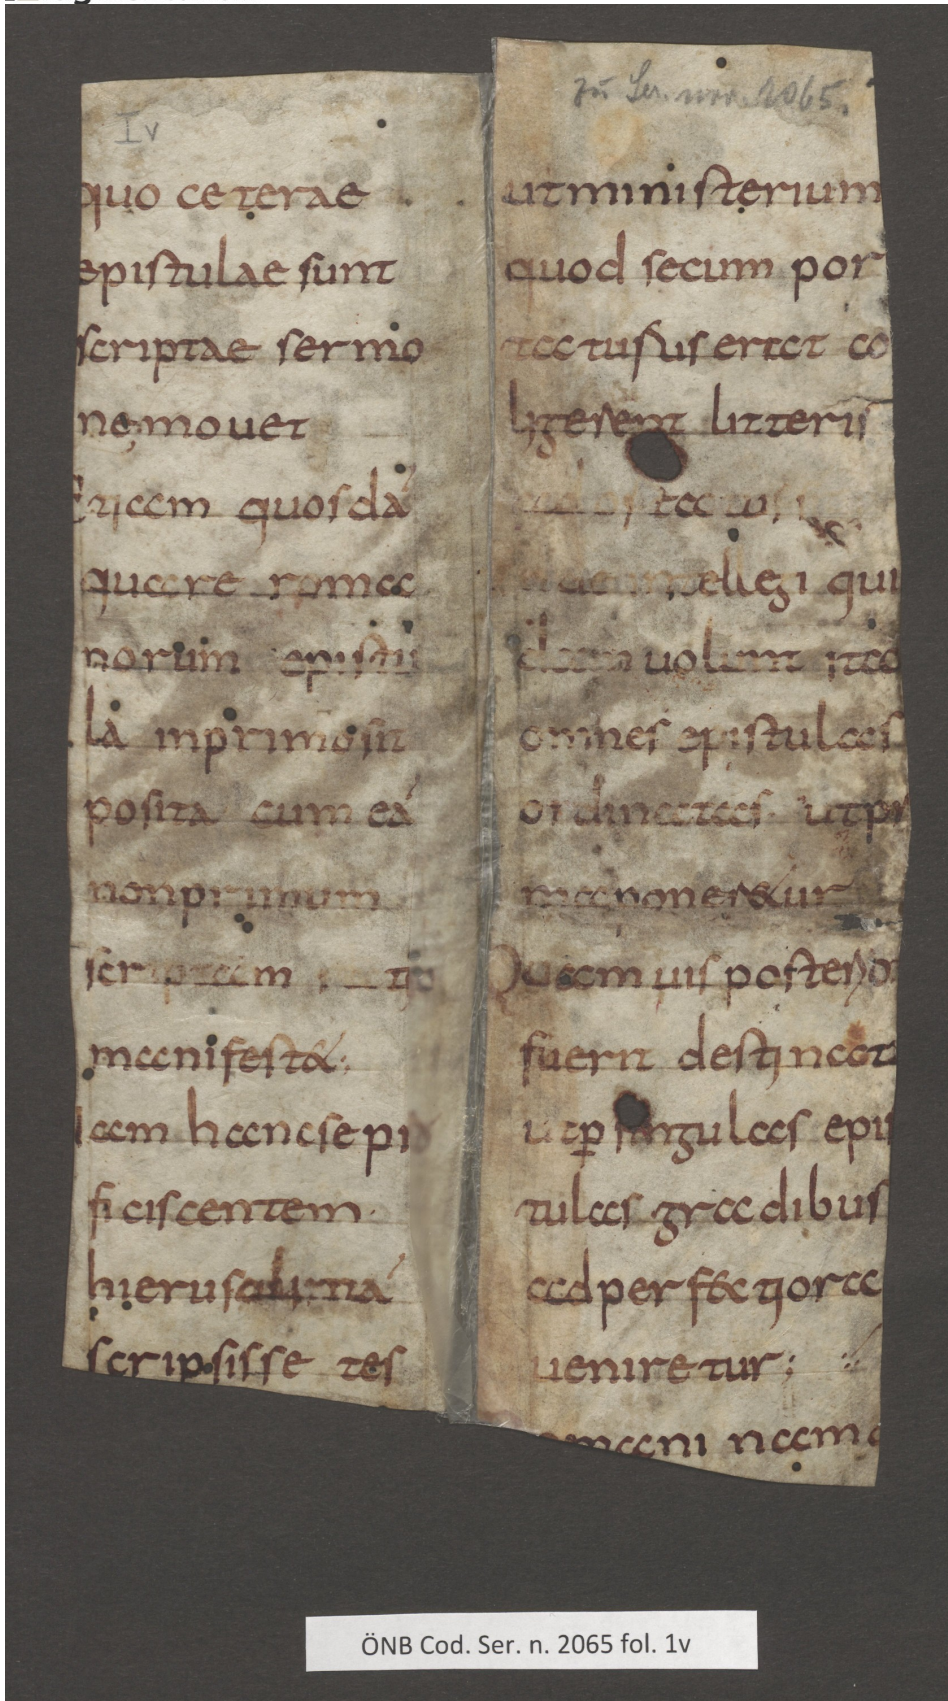 Iv
quo ceterae
epistulae sunt
scriptae sermo
ne mouet
Etiam quosdá
quare roma
norum epistu
lá inprimosit
posita cum eá
non primum
scriptam
manifestat;
Nam hanc se pro
ficiscentem
hierusalimá
scripsisse tes
zu Ser. nov. 2065.
ut ministerium
quod secum por
taturus erat co
ligerent litteris
intellegi qui
dam uolunt ita
omnes epistulas
ordinatas ut pri
ma poneretur
Quamuis posterior
fuerit destinat
ut ꝑ singulas epis
tulas gradibus
ad perfectiora
ueniretur;
omani nam
ÖNB Cod. Ser. n. 2065 fol. 1v